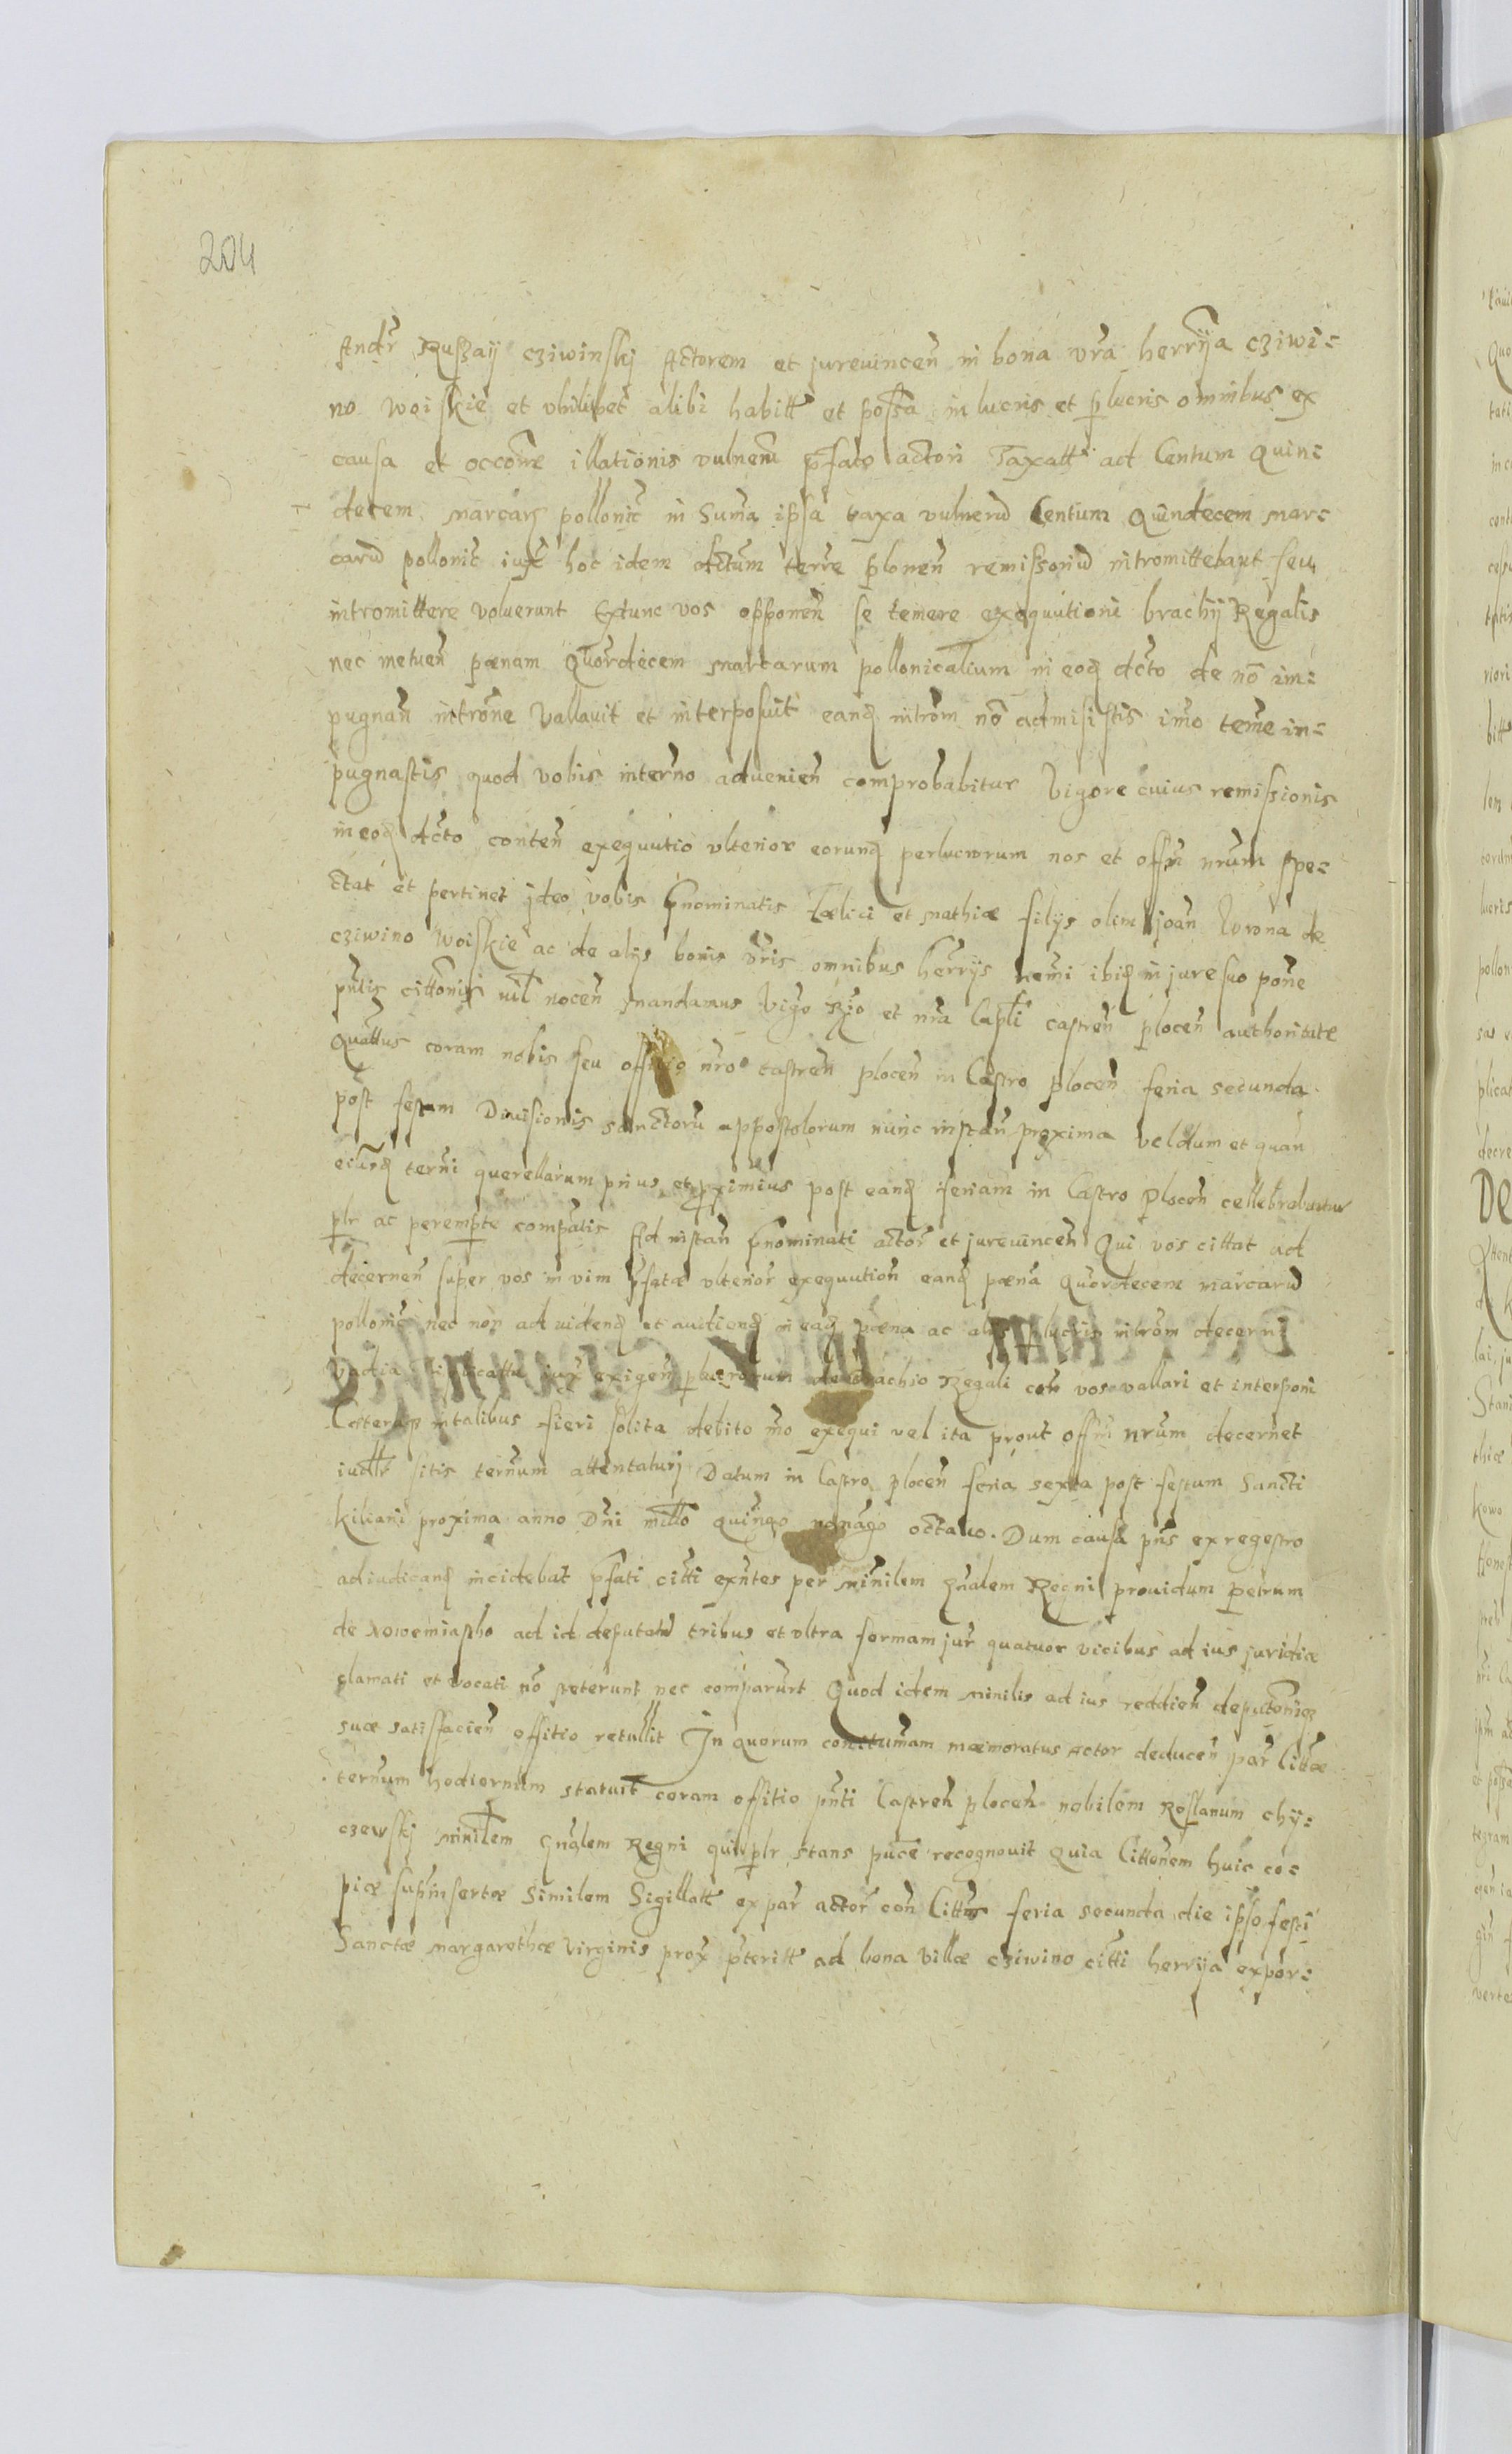 204
Andr Ruszaij cziwinskj Actorem et jurevincen in bona vra herrija cziwi=
no woiskie et vbilibet alibi habitt et possa in lucris et plucris omnibus ex
causa et occone illationis vulneru pfato actori Taxatt ad Centum Quin=
decem marcarũ pollonic in Suma ipsa taxa vulnerũ Centum Quindecem mar=
carũ pollonic iux hoc idem dctum terre plonen remissoriũ intromittebant seu
intromittere voluerunt Extunc vos opponen se temere exequutioni brachij Regalis
nec metuen pœnam Quordecem marcarum pollonicalium in eod dcto de no im=
pugnan introne vallauit et interposuit eand introm no admisistis imo teme in=
pugnastis quod vobis interno aduenien comprobabitur Vigore cuius remissionis
in eod dcto conten exequutio vlterior eorund perlucrorum nos et offm nrum spe=
ctat et pertinet ideo vobis pnominatis Fœlici et Mathiæ filijs olim joan Korona de
cziwino woiskie ac de alijs bonis vris omnibus herrijs nemi ibid in jure suo pone
pntis cittonis nil nocen mandamus Vigo Rgio et nra Capli castren plocen authoritate
Quattus coram nobis seu offitio nro castren plocen in Castro plocen feria secunda
post festum Diuisionis sanctoru appostolorum nunc instan proxima vel dum et quan
eiusd terni querellarum prius et proximius post eand feriam in Castro Plocen cellebrabuntur
plr ac perempte compatis Ad instan pnominati actor et jurevincen Qui vos cittat ad
decernen super vos in vim pfatæ vlterior exequution eand pœna Quordecem marcarũ
pollonic nec non ad uidend et audiend in ead pœna ac alijs plucris introm decerni
Vadia exigen plucrorum de brachio Regali con vos vallari et interponi
Cæteraq in talibus fieri solita debito mo exequi vel ita prout offm nrum decernet
iuctlr sitis ternum attentaturj Datum in Castro plocen feria sexta post festum Sancti
Kiliani proxima anno Dni millo quingo nonago octauo. Dum causa pns ex regestro
adiudicand incidebat pfati citti exntes per Minilem Gnalem Regni prouidum petrum
de Nowemiastho ad id deputatũ tribus et vltra formam jur quatuor vicibus ad ius juridiæ
clamati et vocati no steterunt nec comparurt Quod idem minilis ad ius reddien deputonis
suæ satisfacien offitio retullit In quorum contumam mæmoratus Actor deducen par Cittæ
ternum hodiernum statuit coram offitio pnti Castren plocen nobilem Roslanum chij=
czewskj minilem Gnalem Regni qui plr stans puce recognouit Quia Cittonem huic co=
piæ supinsertæ Similem Sigillatt ex par actor con Cittos feria secunda die ipso festi
Sanctæ Margarethæ Virginis prox pteritt ad bona Villæ cziwino citti herrija expor=